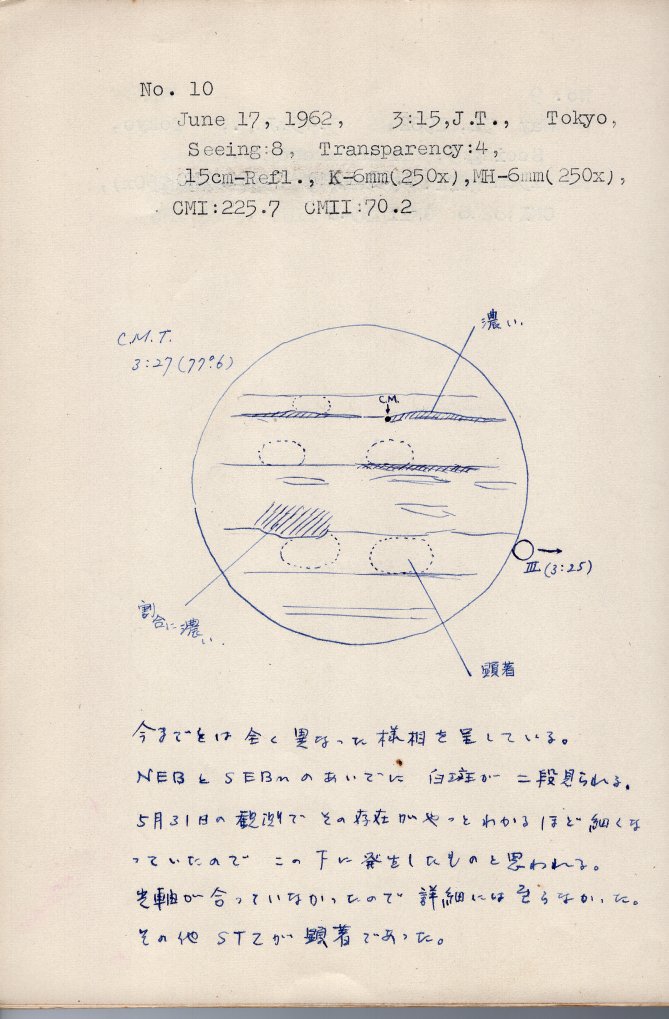 No. 10
June 17, 1962, 3:15,J.T., Tokyo,
Seeing:8, Transparency:4,
15cm-Refl., K-6mm(250x),MH-6mm(250x),
CMI:225.7 CMII:70.2
濃い.
C.M.T.
3:27(77°6)
C.M.
III (3:25)
割合に濃い.
顕著
今までとは全く異なった様相を呈している。
NEBとSEBnのあいだに 白斑が 二段見られる。
5月31日の観測で その存在がやっとわかるほど細くな
っていたので この下に発生したものと思われる。
光軸が合っていなかったので 詳細には至らなかった。
その他 STZが 顕著であった。